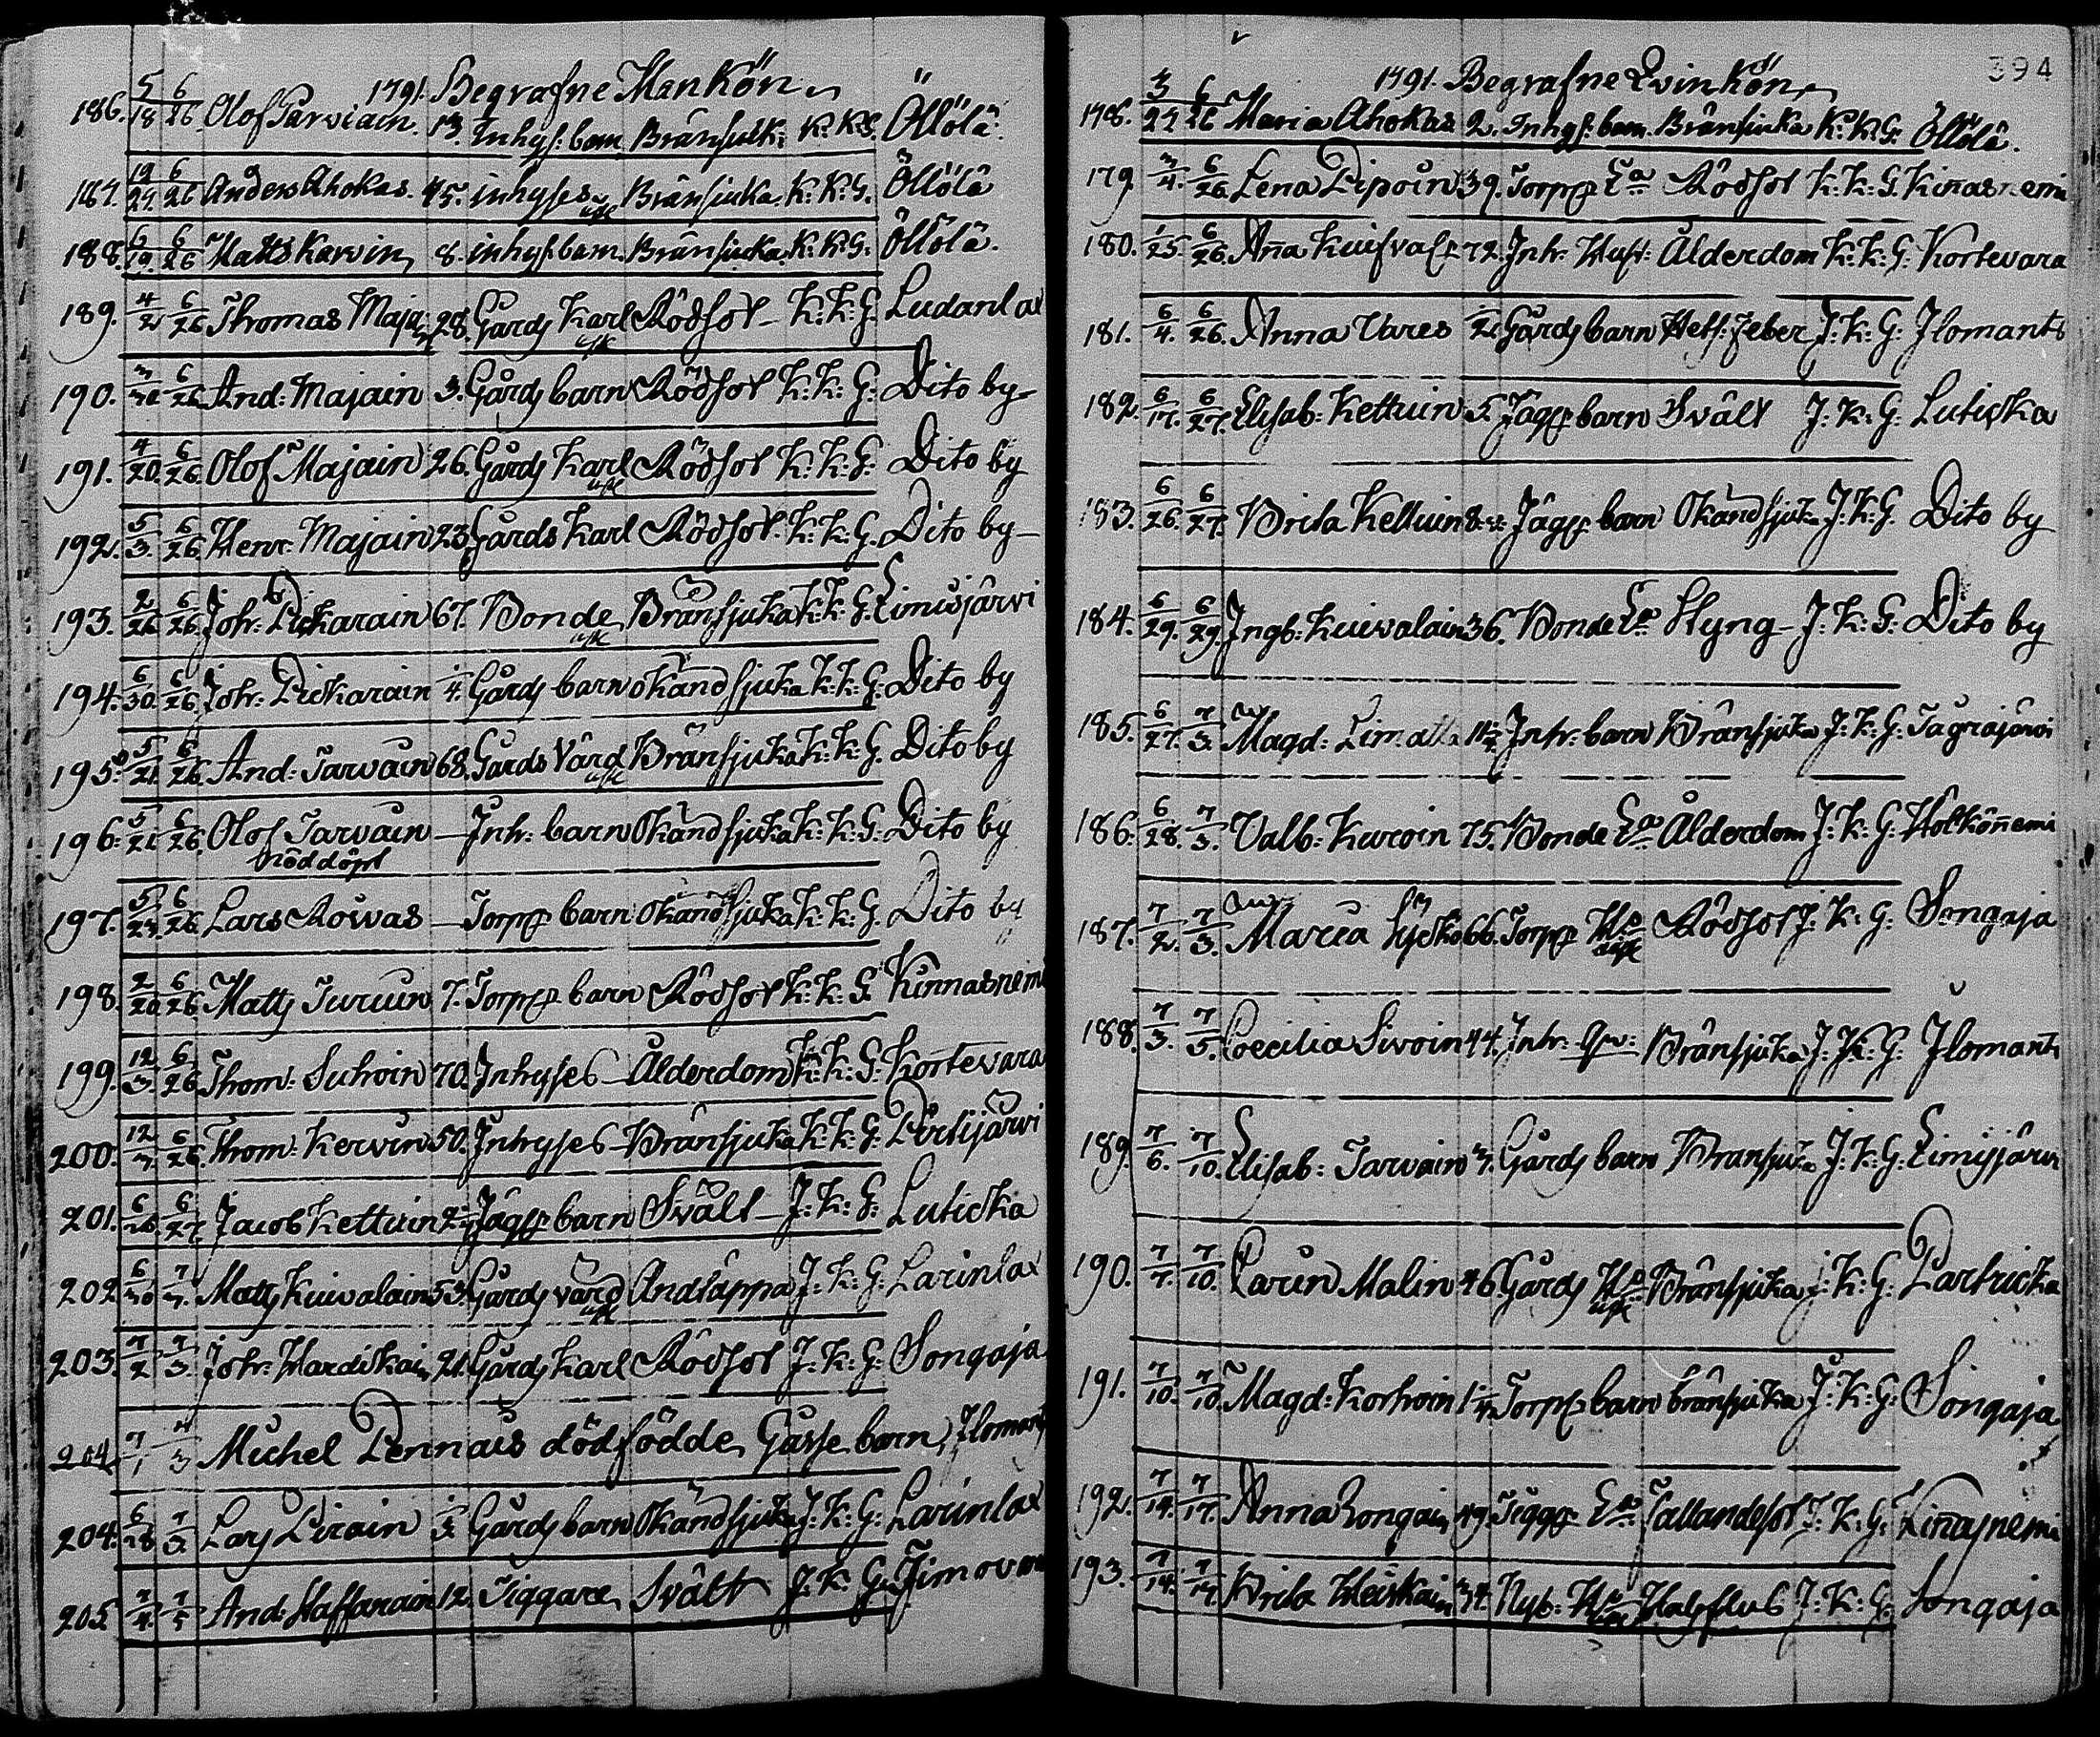 1791. Begrafne Mankön
186. 5/18 6/26 Olof Parviain. 13. Inhys: barn Brånsiuk: K: K: G. Öllölä.
187. 19/27. 6/26 Anders Ahokas. 45. inhyses Brånsiuka. K: K: G. Öllölä
188. 6/19. 6/26 Matts Karvin 8. inhys. barn. Brånsiuka. K: K: G. Öllölä.
189. 4/2 6/26 Thomas Majain 28. Gårds Karl Rödsot K: K: G. Ludanlax
190. 3/30 6/26 And: Majain 3. Gårds barn Rödsot K: K: G: Dito by
191. 4/20. 6/26. Olof Majain 26. Gårds Karl Rödsot K: K: G: Dito by
192. 5/3. 6/26 Henr: Majain 23. Gårds Karl Rödsot. K: K: G. Dito by
193. 2/26 6/26. Joh: Pickarain 67. Bonde Brånsjuka K: K: G: Eimisjärvi
194. 6/30. 6/26. Joh: Pickarain 1/4. Gårds barn okänd sjuka K: K: G: Dito by
195. 5/21 6/26 And: Tarvain 68. Gårds Värd Brånsjuka K: K: G. Dito by
196. 5/21 6/26. Olof Tarvain Inh: barn Okänd sjuka K: K: G: Dito by
Nöddöpt
197. 5/23. 6/26. Lars Rowas Torpp barn Okänd sjuka K: K: G. Dito by
198. 2/20 6/26 Matts Turuin 7. Torpp barn Rödsot K: K: G. Kinnasnemi
199. 12/3. 6/26 Thom: Suhoin 70. Inhyses Ålderdom K: K: G: Kortevara
200. 12/7 6/26. Thom: Kervin 50. Inhyses Brånsjuka K: K: G: Pirttijärvi
201. 6/26. 6/27. Jacob Kettuin Jägg barn Svält J: K: G: Lutiska
202. 6/30 7/3. Matts Kuivalain 53. Gårds värd Andtäppa J: K: G: Larinlax
203. 7/2 7/3. Joh: Hardikain 21. Gårds Karl Rödsot J: K: G: Songaja
204. 7/1 7/3 Michel Pennais dödfödde Gåsse barn, Ilomants
204. 6/28 7/3. Lars Pirain Gårds barn Okänd sjuka J: K: G: Larinlax
205. 7/4. 7/5 And: Haffarain 12. Tiggare Svält J: K: G. Timovara
394
1791. Begrafne Qvinkön
178. 3/27 6/26 Maria Ahokas 2. Inhys: barn. Brånsiuka K: K: G: Öllölä.
179. 3/4. 6/26. Lena Pipoin 39. Torpp Ea Rödsot K: K: G. Kinasnemi
180. 1/25. 6/26. Aña 72. Inh: Hust: Ålderdom K: K: G: Kortevara
181. 6/4. 6/26. Anna Vares Gårds barn Het: Feber J: K: G: Ilomants
182. 6/17. 6/27. Elisab: Kettuin 5 Jägg barn Svält J: K: G: Lutiska
183. 6/26. 6/27. Brita Kettuin Jägg barn Okänd sjuka J: K: G. Dito by
184. 6/29. 6/29. Ingb: Kuivalain 36. Bonde Ea Styng J: K: G: Dito by
185. 6/27. 7/3. Magd: Inh: barn Brånsjuka J: K: G: Tagrajärvi
186. 6/28. 7/3. Valb: Kuroin 75. Bonde Ea Ålderdom J: K: G: Holköñemi
187. 7/2. 7/3. Maria 66. Torpp Ha Rödsot J: K: G: Songaja
188. 7/3. 7/5. Coecilia Sivoin 44. Inh: Qv: Brånsjuka J: K: G: Ilomants
189. 7/6. 7/10. Elisab: Tarvain 3. Gårds barn Brånsjuka J: K: G: Eimisjärvi
190. 7/7. 7/10. Carin Malin 46 Gårds Ha Brånsjuka J: K: G: Partricka
191. 7/10. 7/10. Magd: Korhoin 1 1/4. Torpp barn brånsjuka J: K: G: Songaja
192. 7/14. 7/17. Anna Rongain 49. Tiggg: Ea Fallandesot J: K: G: Kinasnemi
193. 7/14. 7/17 Brita Heiskain 34. Nyb: Ha Halsflus J: K: G: Songaja